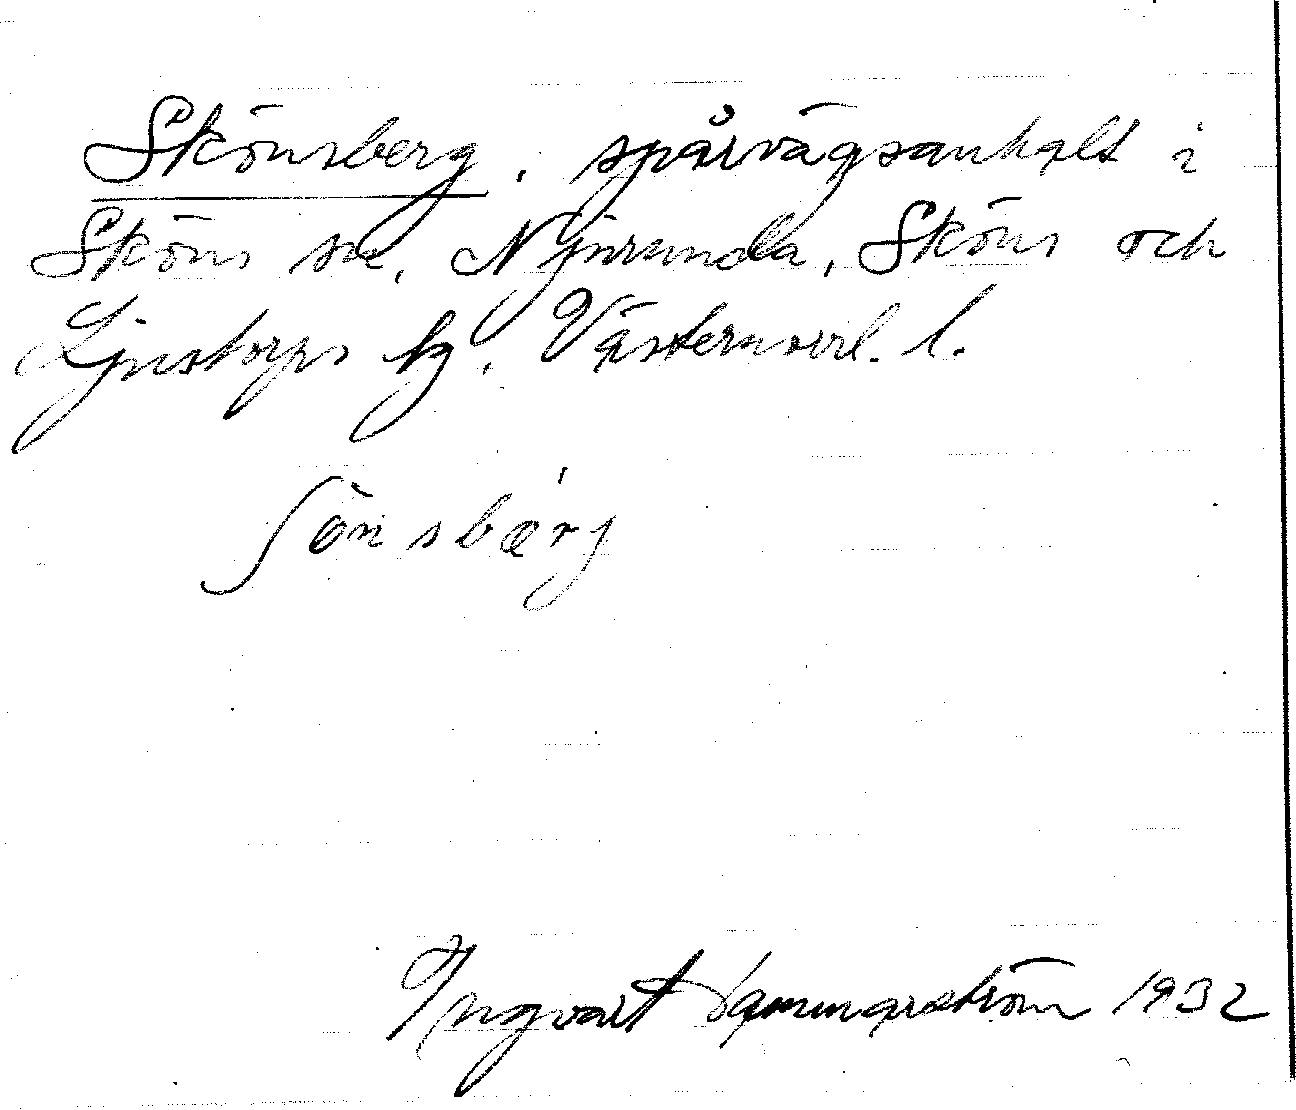 Skönsberg, spårvägsanhalt i
Sköns sn, Njurunda, Sköns och
Ljustorps tg, Västernorrl. l.
ʃönsbærj
Ingvart Hammarström 1932